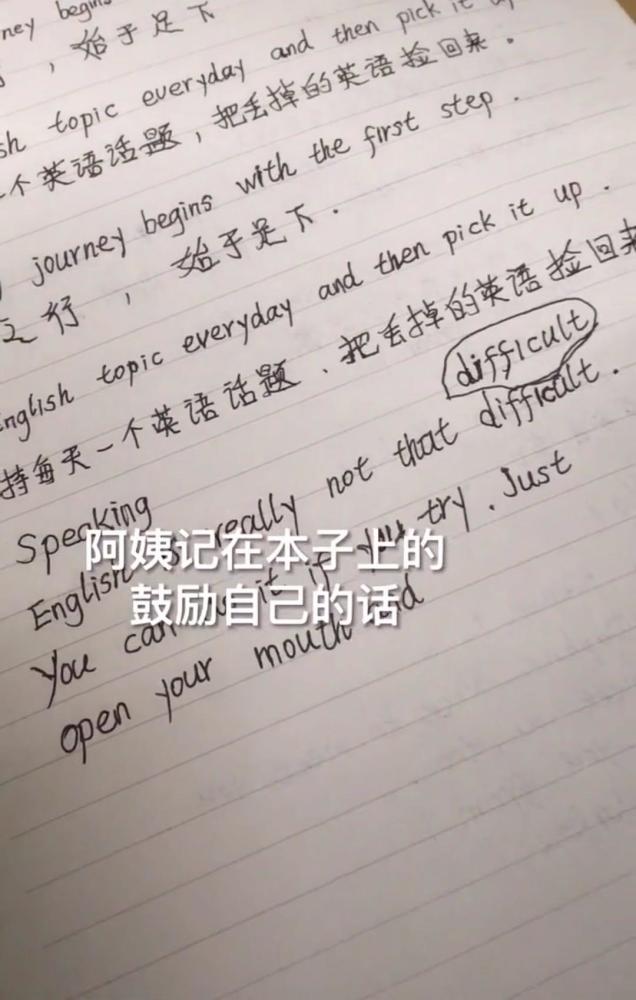 ney begins
，始于足下
sh topic everyday and then pick it up
个英语话题，把丢掉的英语捡回来。
journey begins with the first step.
之行，始于足下.
English topic everyday and then pick it up.
持每天一个英语话题、把丢掉的英语捡回来
difficult
Speaking
English really not that difficult.
You can it if you try. Just
open your mouth and
阿姨记在本子上的
鼓励自己的话